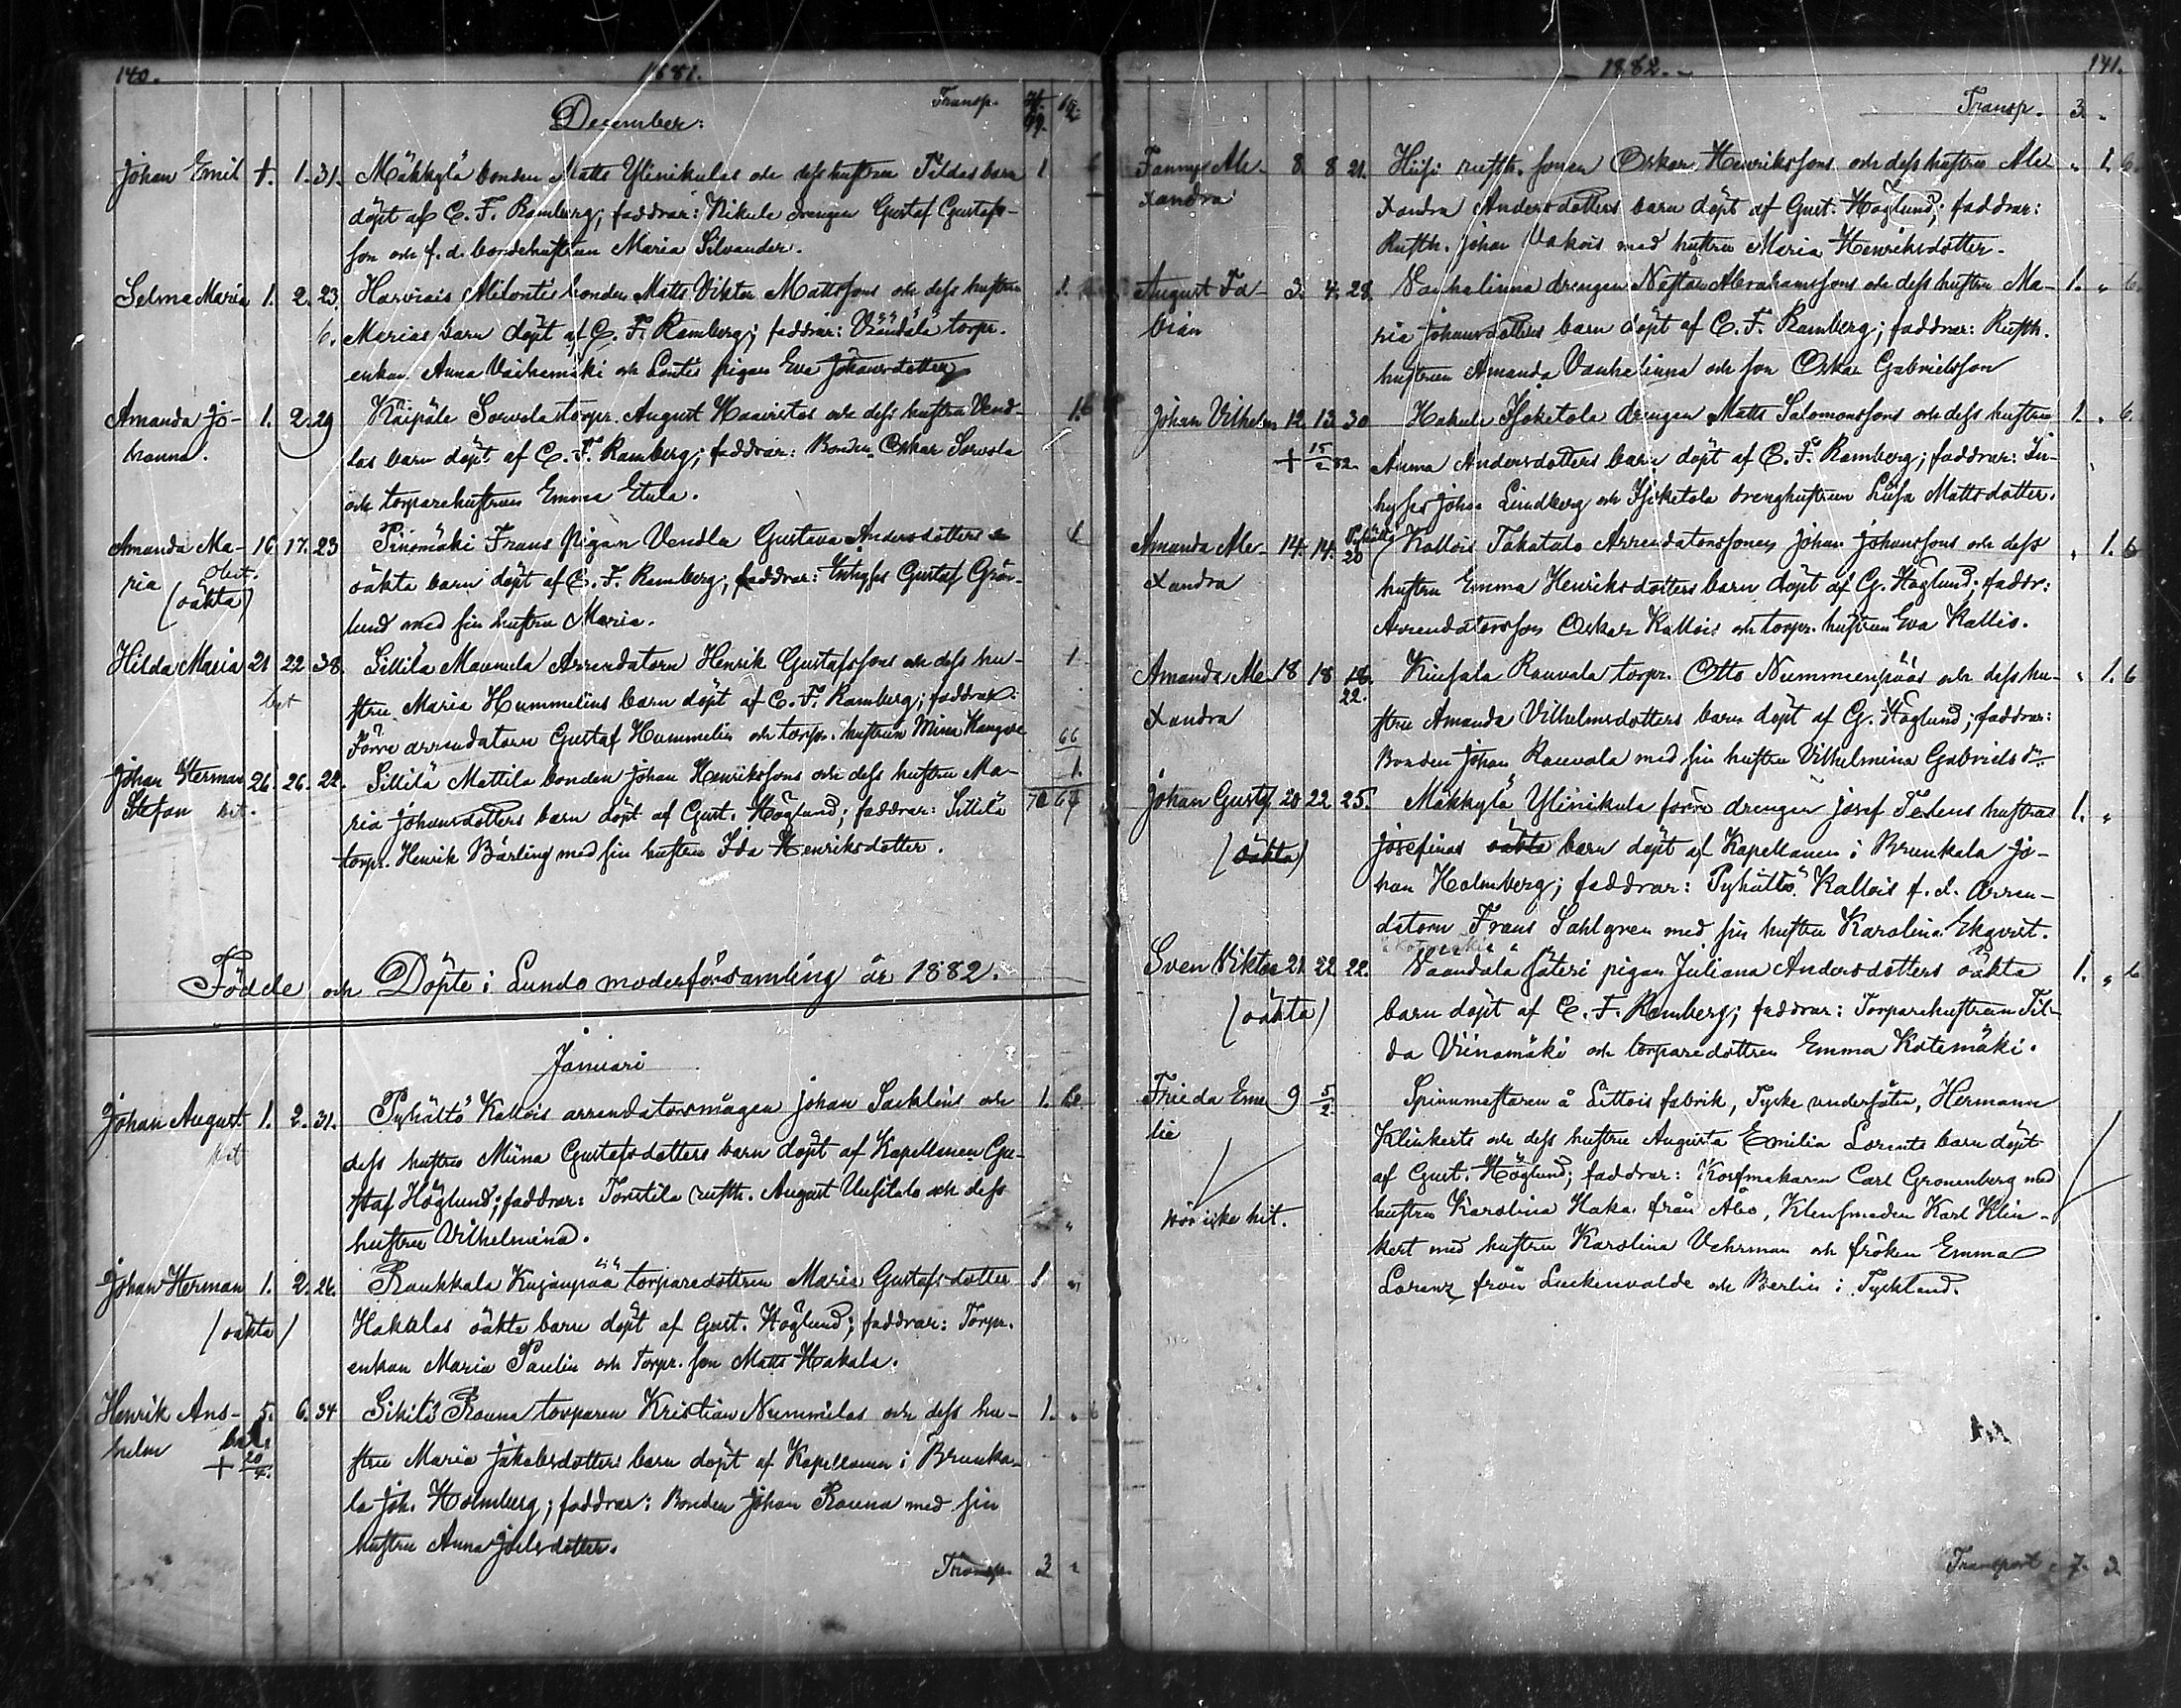 140. 1881.
December: Transp.
Johan Emil +. 1. 31. Mäkkylä bonden Matts Ylinikulas och dess hustru Tildas barn 1 6
döpt af C. F. Ramberg; faddrar: Nikula drengen Gustaf Gustafs-
son och f. d. bondehustrun Maria Silvander.
Selma Maria 1. 2. 23. bonden Matts Viktor Mattssons och dess hustru 1.
6. Marias barn döpt af C. F. Ramberg; faddrar: Väändälä torpr.
enkan Anna och Lontis pigan Eva Johansdotter
Amanda Jo- 1. 2. 29 Käipälä Sorvola torpr. August Haavistos och dess hustru Vend- 1.
hanna. las barn döpt af C. F. Ramberg; faddrar: Bonden Oskar Sorvola
och torparehustrun Emma Etula.
Amanda Ma- 16 17. 23 Pinomäki Frans pigan Vendla Gustava Andersdotters 1
ria obit. (oäkta) oäkta barn döpt af C. F. Ramberg; faddrar: Inhyses Gustaf Grön-
lund med sin hustru Maria.
Hilda Maria 21 22 38. Sillilä Maunula Arrendatorn Henrik Gustafssons och dess hu- 1
stru Maria Hummelins barn döpt af C. F. Ramberg; faddrar:
Förre arrendatorn Gustaf Hummelin och torpr. hustrun Mina 66
Johan Herman 26. 26. 22. Sillilä Mattila bonden Johan Henrikssons och dess hustru Ma- 1.
Stefan ria Johansdotters barn döpt af Gust. Höglund; faddrar: Sillilä 70 67
torpr. Henrik Bärling med sin hustru Ida Henriksdotter.
Födde och Döpte i Lundo moderförsamling år 1882.
Januari
Johan August 1. 2. 31. Pyhältö Kallois arrendatorsmågen Johan Sacklins och 1.
dess hustrus Miina Gustafsdotters barn döpt af Kapellanen Gu-
staf Höglund; faddrar: Tortila rusth. August Uusitalo och dess
hustru Vilhelmina.
Johan Herman 1. 2. 26. Raukkala Kujanpää torparedottren Maria Gustafsdotter 1 "
(oäkta) Hakalas oäkta barn döpt af Gust. Höglund; faddrar: Torpr.
enkan Maria Paulin och torpr. son Matts Hakala.
Henrik Ans- 5. 6. 34 Rauna torparen Kristian Nummilas och dess hu- 1. " 6
helm + 20/4. stru Maria Jakobsdotters barn döpt af Kapellanen i Brunka-
la Joh. Holmberg; faddrar: Bonden Johan Rauna med sin
hustru Anna Joelsdotter.
Transp. 3 "
1882. 141.
Transp. 3 "
Fanny Ale- 8. 8 21. Hiisi rusth. sonen Oskar Henrikssons och dess hustru Ale- " 1. 6
xandra xandra Andersdotters barn döpt af Gust. Höglund; faddrar:
Rusth. Johan Vakois med hustru Maria Henriksdotter.
August Fa- 3. 4. 28. Vanhalinna drengen Nestor Abrahamssons och dess hustru Ma- 1. " 6
bian ria Johansdotters barn döpt af C. F. Ramberg; faddrar: Rusth.
hustrun Amanda Vanhalinna och son Oskar Gabrielsson
Johan Vilhelm 12. 13. 30 Hakula Isoketola drengen Matts Salomonssons och dess hustru 1. " 6.
+ 15/2 82. Anna Andersdotters barn döpt af C. F. Ramberg; faddrar: In-
hyses Johan Lindberg och Isoketola drenghustrun Lisa Mattsdotter.
Amanda Ale- 14. 14. Pyhältö 20 Kallois Takatalo Arrendatorssonen Johan Johanssons och dess " 1. 6
xandra hustru Emma Henriksdotters barn döpt af G. Höglund; faddr:
Arrendatorsson Oskar Kallois och torpr. hustrun Eva Kallis.
Amanda Ale- 18 18 18. Rauvala torpr. Otto Nummenpääs och dess hu- " 1. 6
xandra 22. stru Amanda Vilhelmsdotters barn döpt af G. Höglund; faddrar:
Bonden Johan Rauvala med sin hustru Vilhelmina Gabrielsdr.
Johan Gustaf 20 22. 25. Mäkkylä Ylinikula förre drengen Josef Tedens hustrus 1. "
(oäkta) Josefinas oäkta barn döpt af Kapellanen i Brunkala Jo-
han Holmberg; faddrar: Pyhältö Kallois f. d. arren-
datorn Frans Sahlgren med sin hustru Karolina Ekqvist.
Sven Viktor 21. 22. 22. Väändälä säteri pigan Juliana Andersdotters oäkta 1. " 6
(oäkta) barn döpt af C. F. Ramberg; faddrar: Torparehustrun Til-
da Viinamäki och torparedottren Emma Kotemäki.
Frieda Emi- 9 5/2. Spinnmästaren å Littois fabrik, Tyske undersåten, Hermann
lie Klinkerts och dess hustru Augusta Emilia Lorentz barn döpt
af Gust. Höglund; faddrar: Korfmakaren Carl Gronenberg med
hör icke hit. hustru Karolina Haka från Åbo, Klensmeden Karl Klin-
kert med hustru Karolina Vehrman och fröken Emma
Lorenz från Luckenvalde och Berlin i Tyskland.
Transport 7. 3